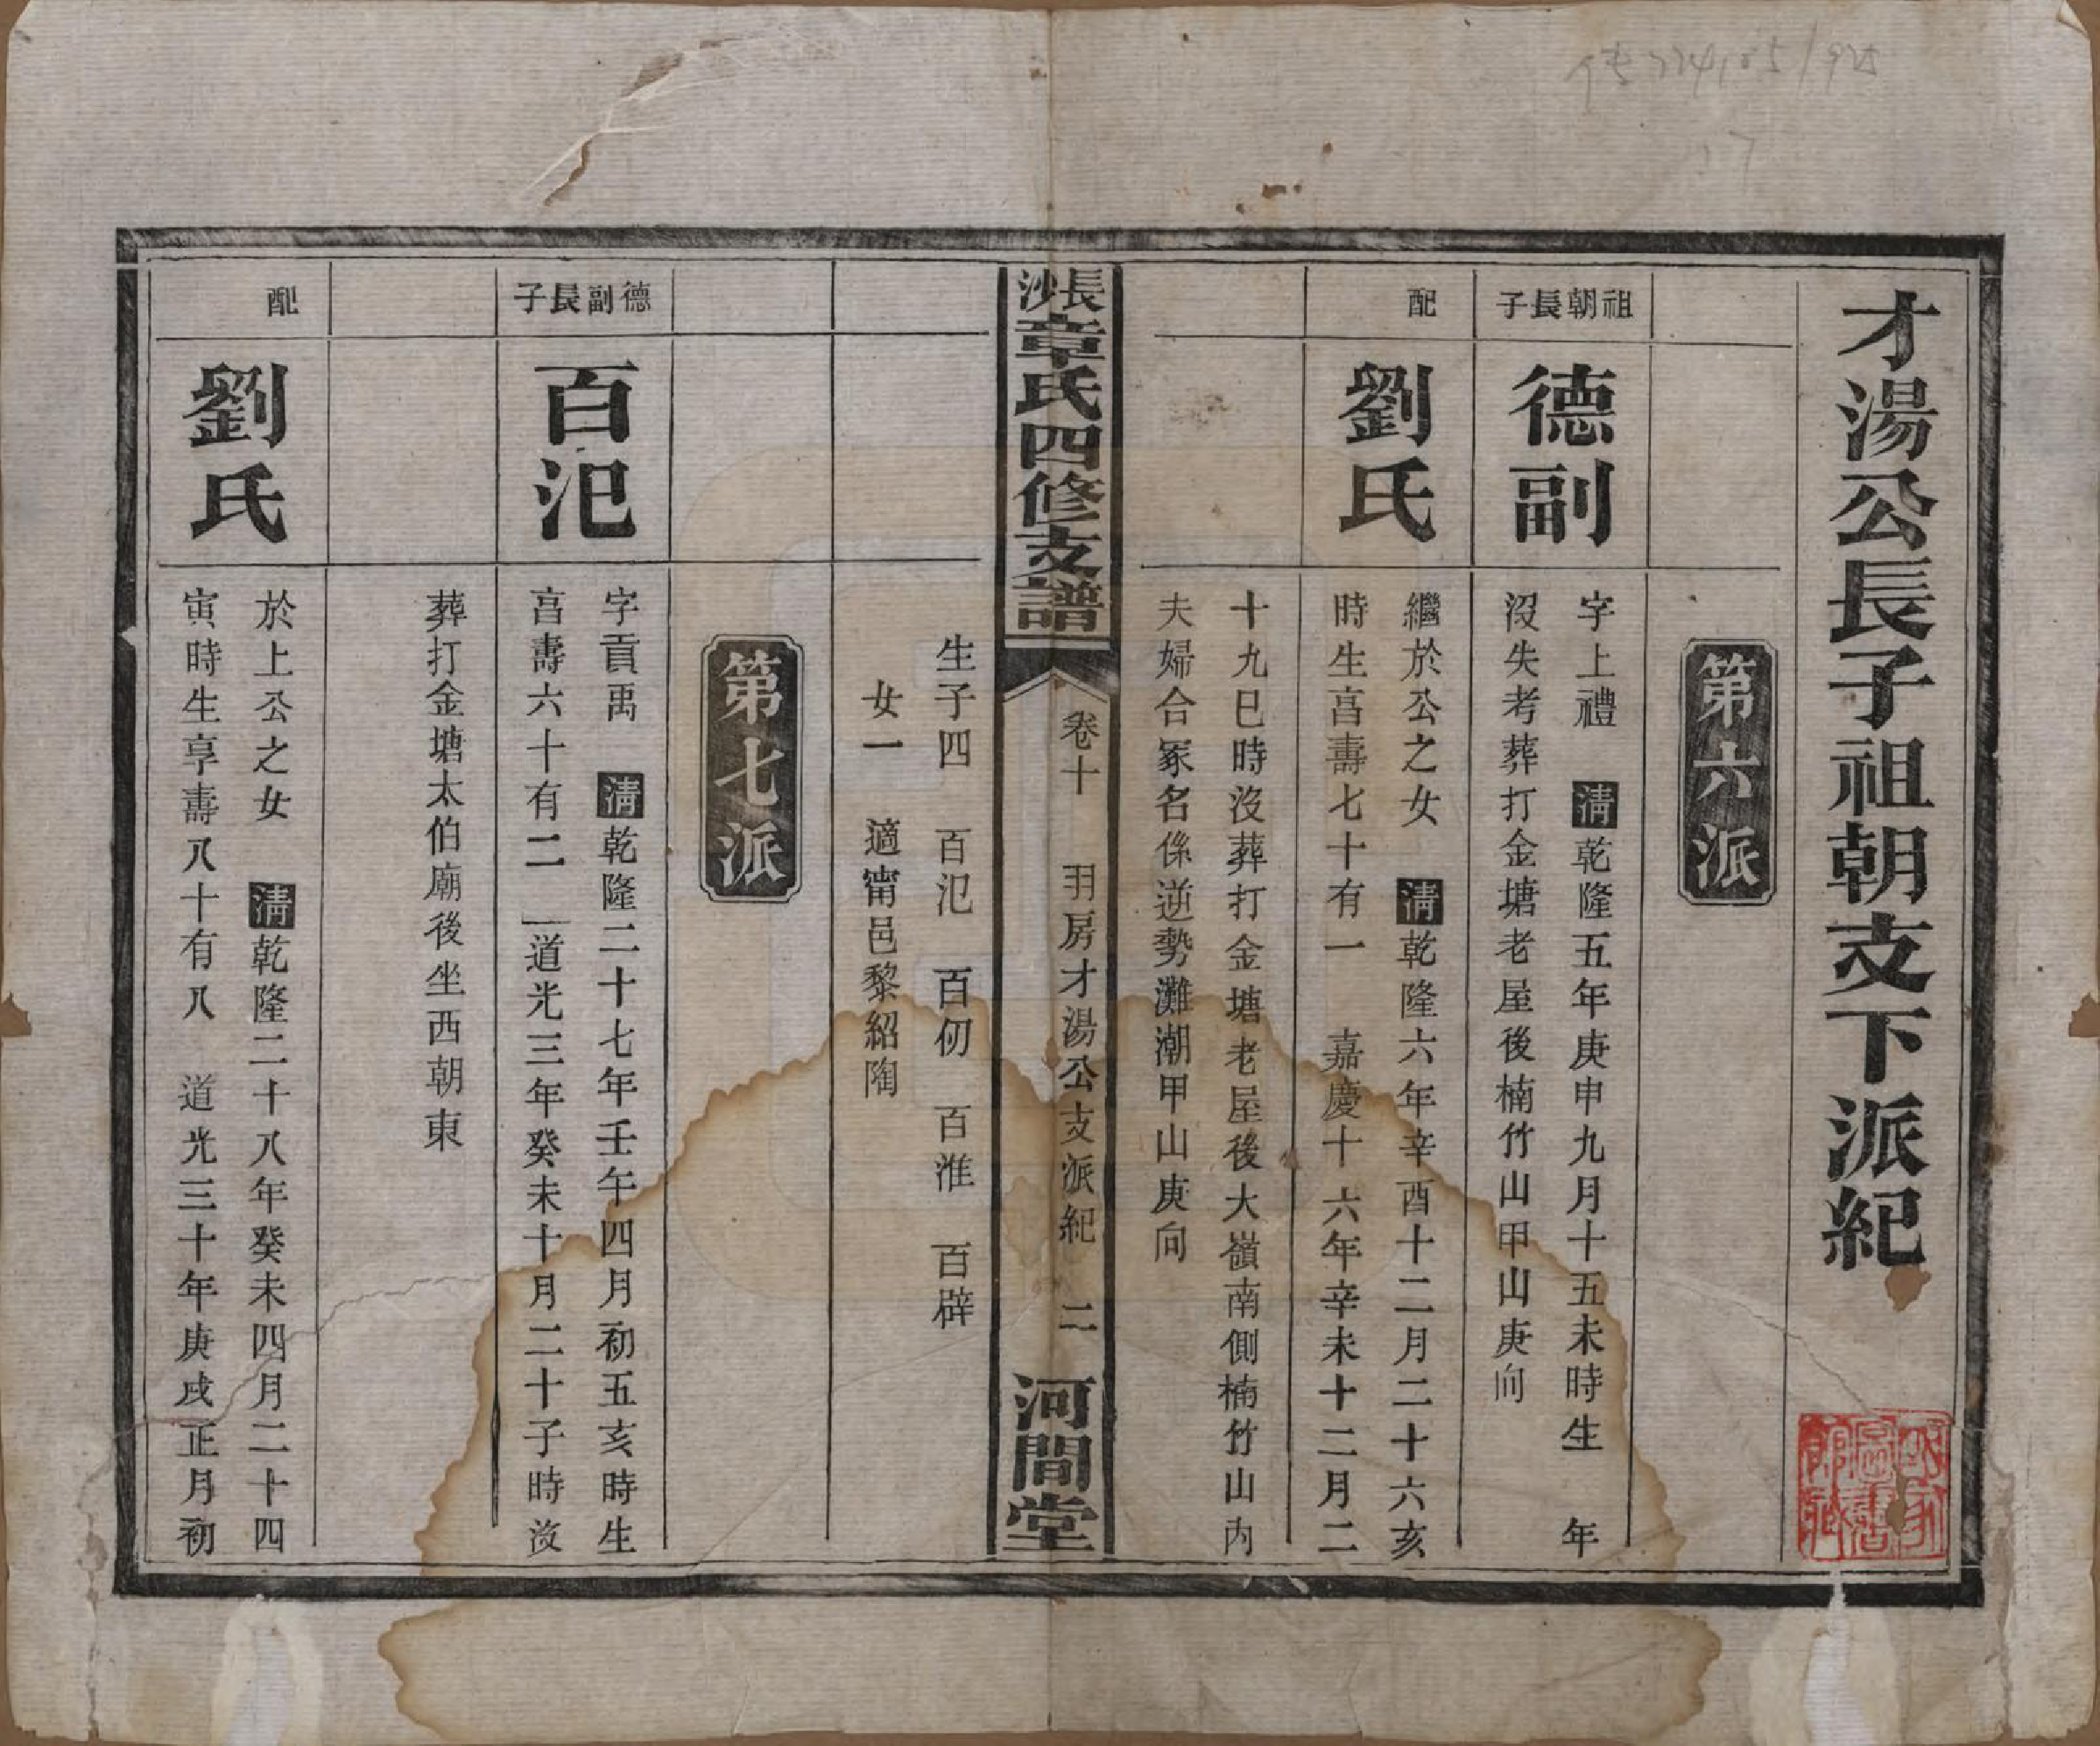 才湯公長子祖朝支下派紀
第六派
祖朝長子
德副
字上禮 清乾隆五年庚申九月十五未時生 年
沒失考葬打金塘老屋後楠竹山甲山庚向
配
劉氏
繼於公之女 清乾隆六年辛酉十二月二十六亥
時生享壽七十有一 嘉慶十六年辛未十二月二
十九巳時沒葬打金塘老屋後大嶺南側楠竹山內
夫婦合冢名係逆勢灘潮甲山庚向
長沙章氏四修支譜
卷十 羽房才湯公支派紀 二
河間堂
生子四 百氾 百仞 百淮 百辟
女一 適甯邑黎紹陶
第七派
德副長子
百氾
字貢禹 清乾隆二十七年壬午四月初五亥時生
享壽六十有二 道光三年癸未十月二十子時沒
葬打金塘太伯廟後坐西朝東
配
劉氏
於上公之女 清乾隆二十八年癸未四月二十四
寅時生享壽八十有八 道光三十年庚戌正月初